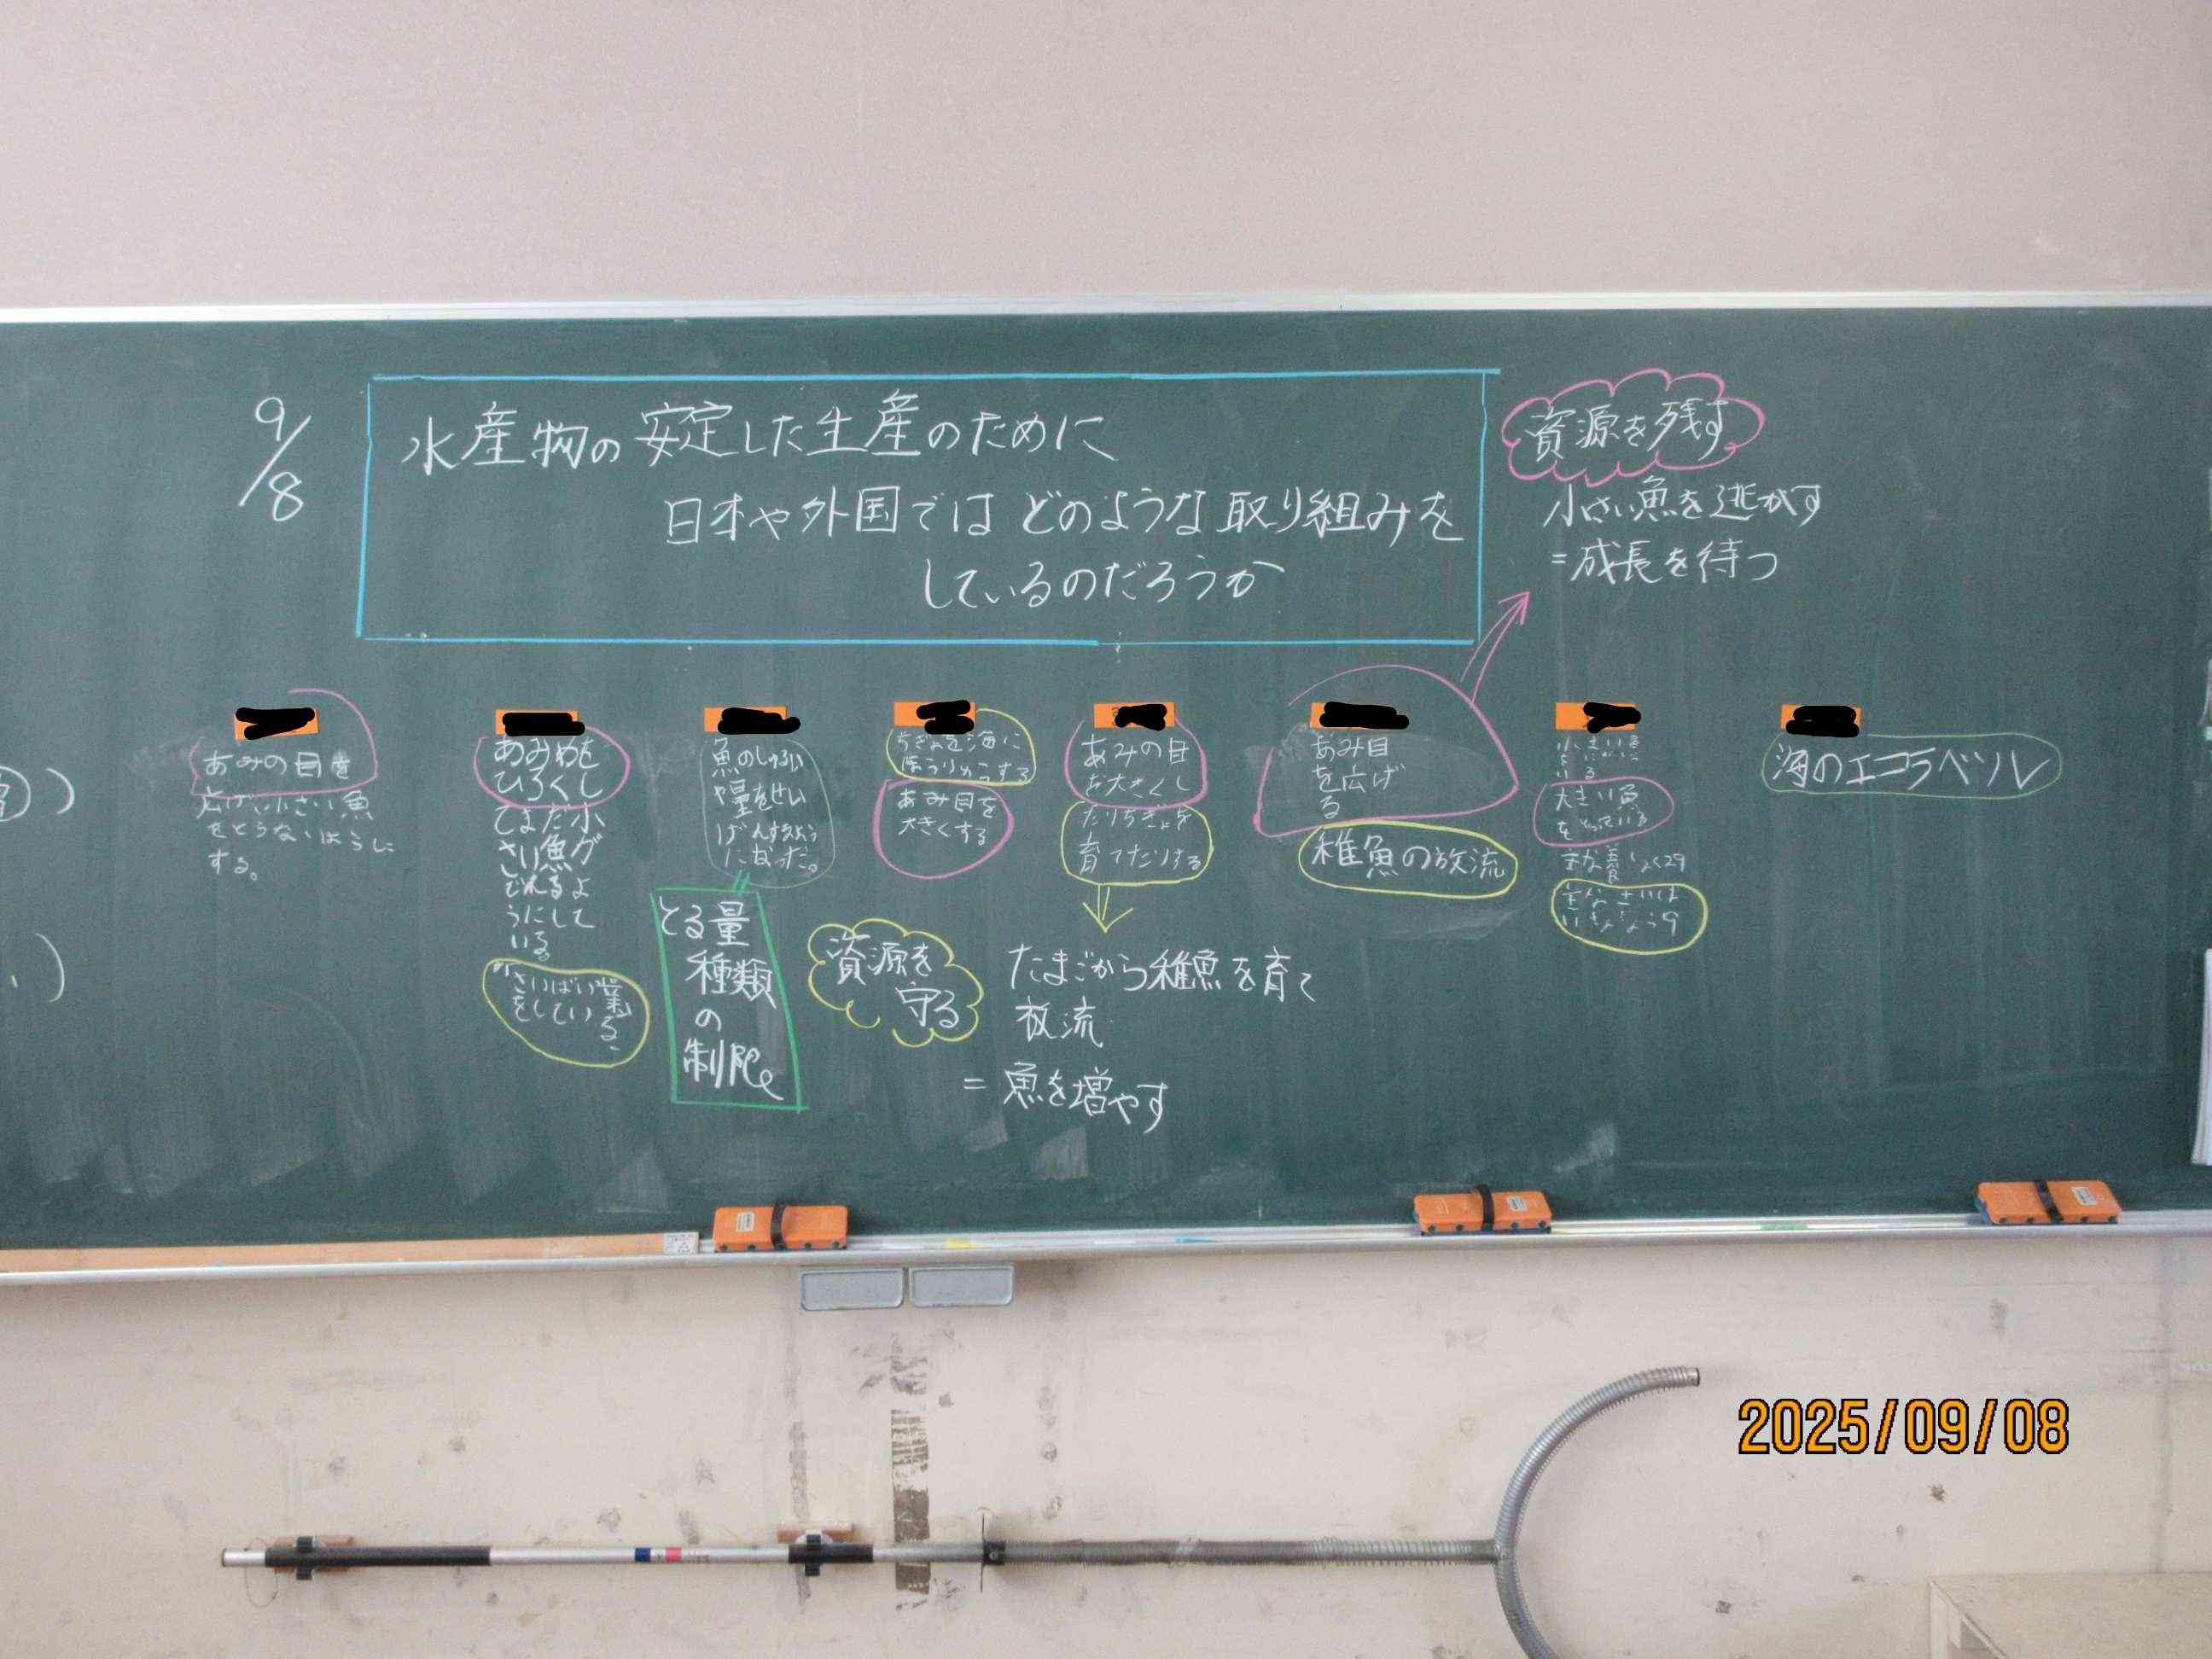 9/8
水産物の安定した生産のために
日本や外国ではどのような取り組みを
しているのだろうか
資源を残す
小さい魚を逃がす
=成長を待つ
あみの目を
広げ小さい魚
をとらないように
する。
あみめを
ひろくし
てまだ小
さい魚グ
でれるよ
うにして
いる
さいばい業
をしている
魚のしゅるい
や量をせい
げんするよう
になった。
とる量
種類
の
制限
ちぎょを海に
ほうりゅうする
あみ目を
大きくする
資源を
守る
あみの目
お大きくし
たりちぎょを
育てたりする
たまごから稚魚を育て
放流
=魚を増やす
あみ目
を広げ
る
稚魚の放流
大きい魚
をとっている
海のエコラベル
2025/09/08